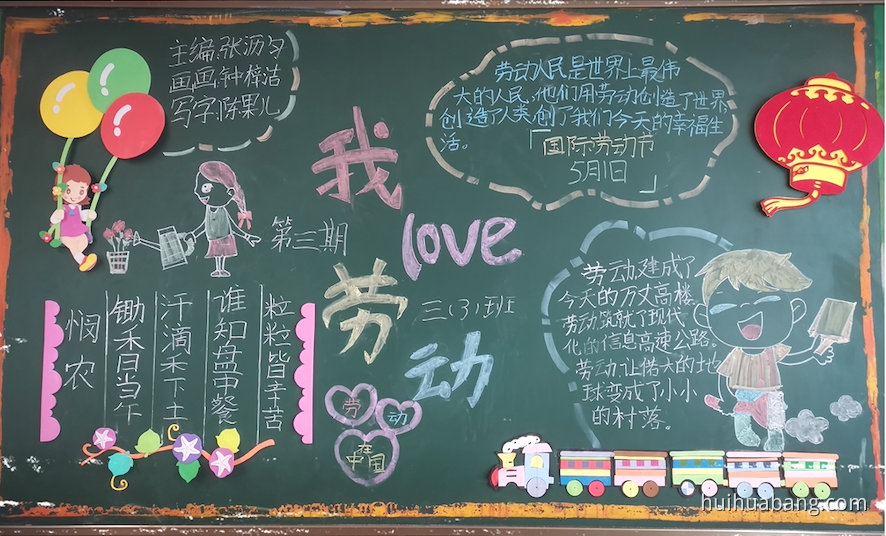 主编:张沥匀
画画:钟梓洁
写字:陈果儿
劳动人民是世界上最伟
大的人民,他们用劳动创造了世界,
创造了人类,创了我们今天的幸福生
活。
「国际劳动节
5月1日」
我
love
劳
动
第三期
三(3)班
悯农
锄禾日当午
汗滴禾下土
谁知盘中餐
粒粒皆辛苦
劳
动
在
中国
劳动,建成了
今天的万丈高楼,
劳动筑就了现代
化的信息高速公路。
劳动,让偌大的地
球变成了小小
的村落。
huihuabang.com